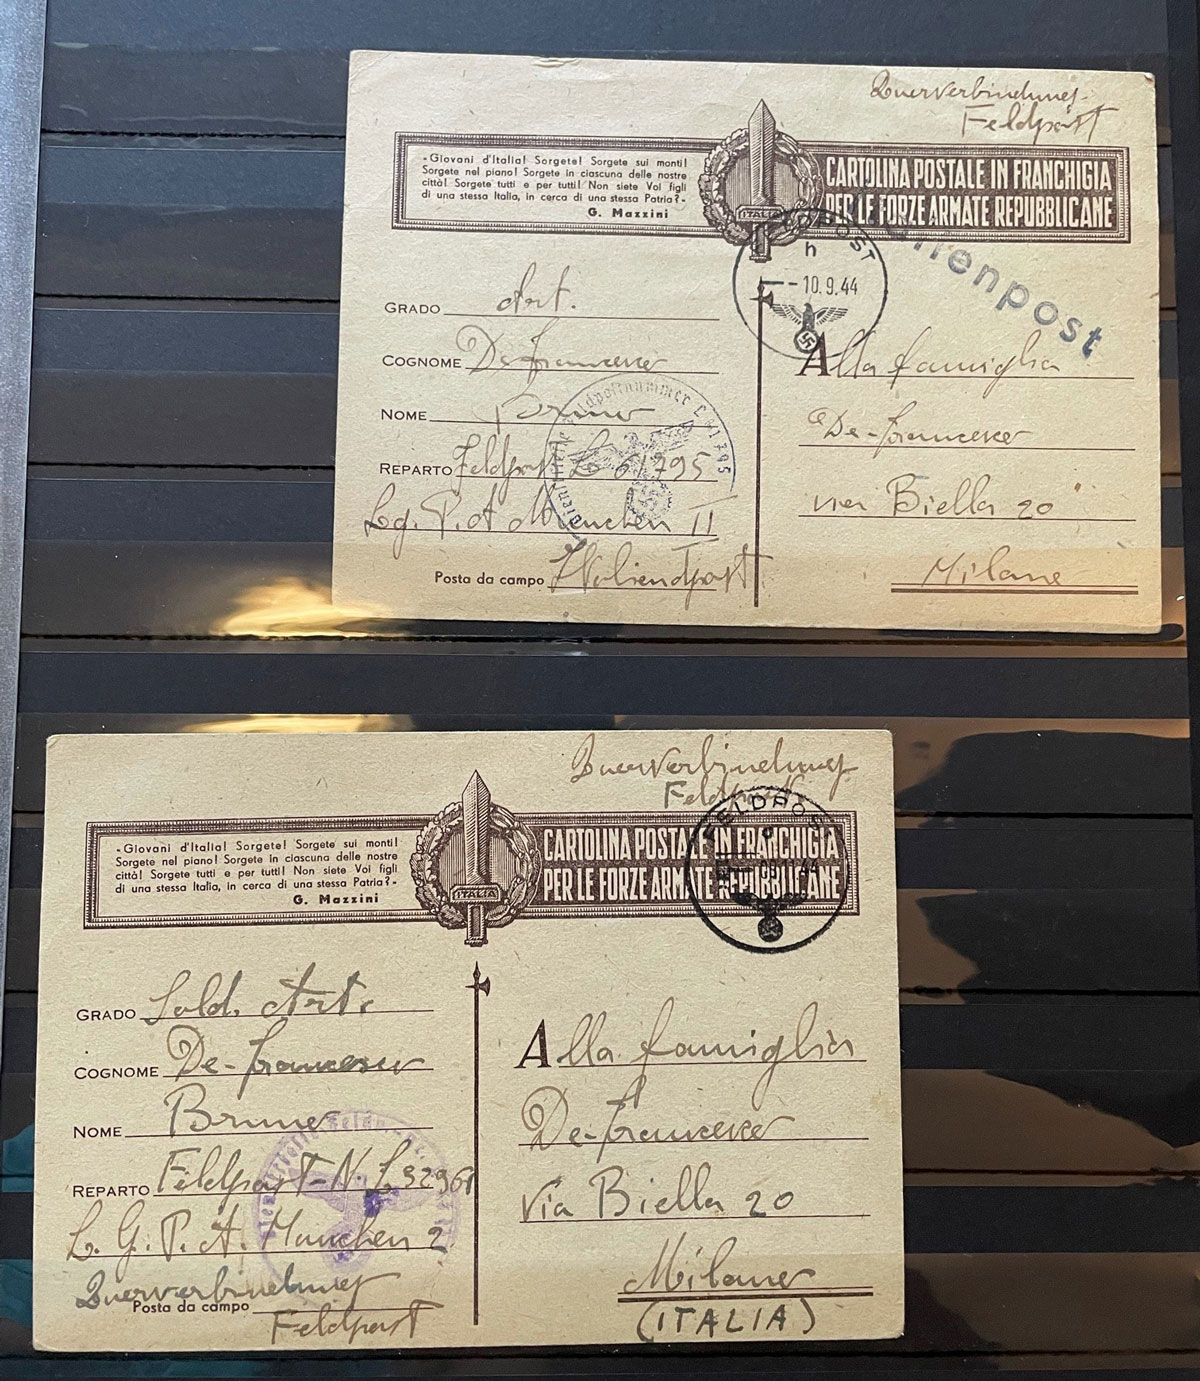 Querverbindung
Feldpost
"Giovani d'Italia! Sorgete! Sorgete sui monti!
Sorgete nel piano! Sorgete in ciascuna delle nostre
città! Sorgete tutti e per tutti! Non siete Voi figli
di una stessa Italia, in cerca di una stessa Patria?"
G. Mazzini
ITALIA
CARTOLINA POSTALE IN FRANCHIGIA
PER LE FORZE ARMATE REPUBBLICANE
FELDPOST
h
10.9.44
GRADO Art.
COGNOME De-francesco
NOME Bruno
REPARTO Feldpost L 61795
Lg. P. A Muenchen II
Posta da campo
Feldpostnummer L 61795
Alla famiglia
De-francesco
via Biella 20
Milano
Querverbindung
Feldpost
"Giovani d'Italia! Sorgete! Sorgete sui monti!
Sorgete nel piano! Sorgete in ciascuna delle nostre
città! Sorgete tutti e per tutti! Non siete Voi figli
di una stessa Italia, in cerca di una stessa Patria?"
G. Mazzini
ITALIA
CARTOLINA POSTALE IN FRANCHIGIA
PER LE FORZE ARMATE REPUBBLICANE
FELDPOST
GRADO Sold. Art.
COGNOME De-francesco
NOME Bruno
REPARTO Feldpost-N. L 32961
L. G. P. A. Munchen 2
Querverbindung
Posta da campo
Feldpost
Alla famiglia
De-francesco
Via Biella 20
Milano
(ITALIA)